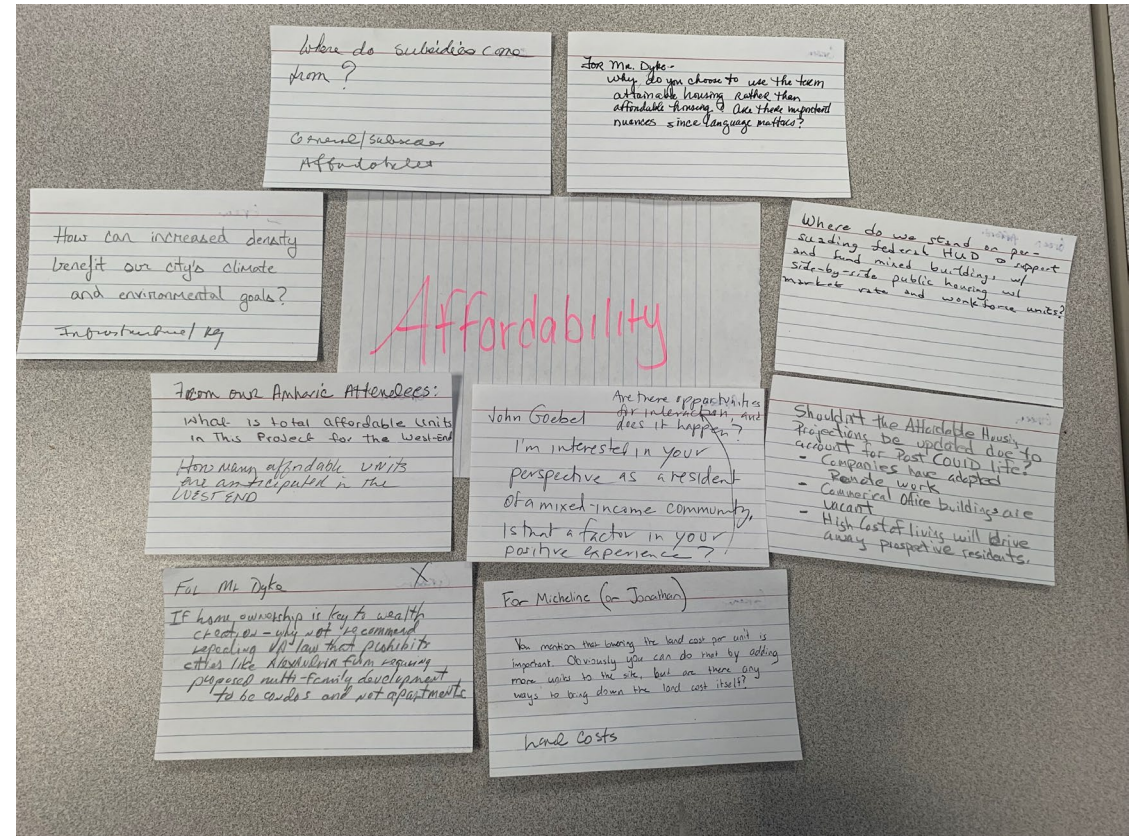 Where do subsidies come
from?
General/Subsidies
For Mr. Dyke-
why do you choose to use the term
attainable housing rather than
affordable housing? Are there important
nuances since language matters?
How can increased density
benefit our city's climate
and environmental goals?
Infrastructure/
Affordability
Where do we stand on per-
suading federal HUD to support
and fund mixed buildings w/
side-by-side public housing w/
market rate and workforce units?
From our Amharic Attendees:
What is total affordable units
in This Project for the West-End
How many affordable units
are anticipated in the
WEST END
John Goebel
Are there opportunities
for interaction, and
does it happen?
I'm interested in your
perspective as a resident
of a mixed-income community,
Is that a factor in your
positive experience?
Shouldn't the Affordable Housing
Projections be updated due to
account for Post COVID life?
- Companies have adopted
Remote work
- Commerical Office buildings are
vacant
- High Cost of living will drive
away prospective residents.
For Mr Dyke X
IF home ownership is key to wealth
creation - why not recommend
repealing VA law that prohibits
cities like Alexandria from requiring
proposed multi-family development
to be condos and not apartments
For Micheline (or Jonathan)
You mention that lowering the land cost per unit is
important. Obviously you can do that by adding
more units to the site, but are there any
ways to bring down the land cost itself?
Land Costs